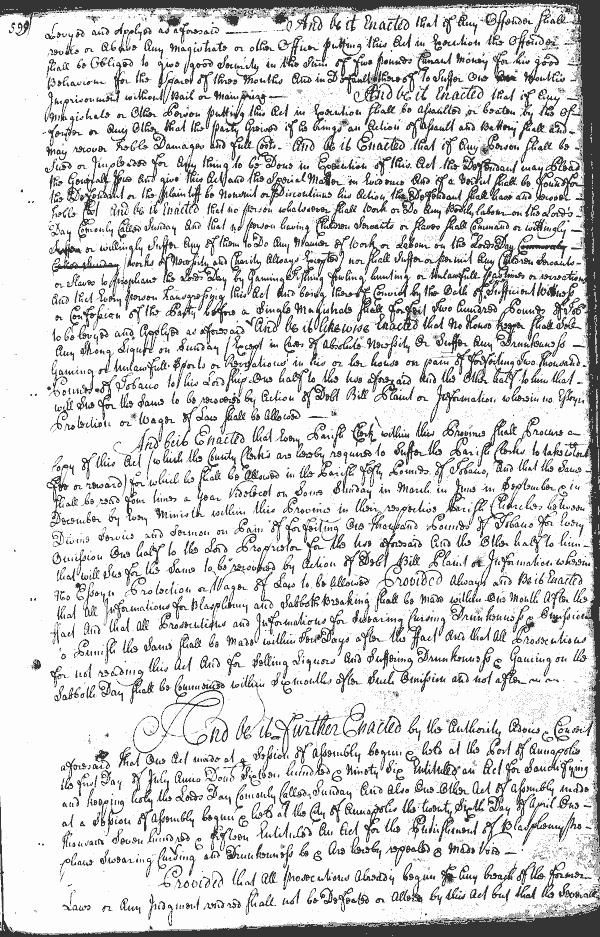 Levyed and Applyed as aforesaid — And be it Enacted that if Any Offender shall
revile or Abuse Any Magistrate or other Officer putting this Act in Execution the Offender
shall be Obliged to give good Security in the Sum of five pounds Currant Money for his good
Behaviour for the Space of three Months And in Default thereof to Suffer One Months
Imprisonment without Bail or Mainprise — And be it Enacted that if Any
Magistrate or Other Person putting this Act in Execution shall be Assaulted or beaten by the Of-
fender or Any Other that the Party Grieved if he brings an Action of Assault and Battery shall and
may recover treble Damages and full Costs. And be it Enacted that if Any Person shall be
Sued or Impleaded for Any thing to be Done in Execution of this Act the Defendant may Plead
the General Issue And give this Act and the Special Matter in Evidence And if a Verdict shall be found for
the Defendant or the Plaintiff be Nonsuit or Discontinue his Action the Defendant shall have and recover
treble And be it Enacted that no person whatsoever shall Work or Do Any Bodily Labour on the Lords
Day Comonly Called Sunday And that no person having Children Servants or Slaves shall Command or wittingly
or willingly Suffer Any of them to Do Any Manner of Work or Labour on the Lords Day Comonly
Called Sunday (Works of Necessity and Charity Always Excepted) nor shall Suffer or permit Any Children Servants
or Slaves to Prophane the Lords Day by Gaming Fishing fowling hunting or Unlawfull Pastimes or recreations
And that Every person transgressing this Act and being thereof Convict by the Oath of Sufficient Witness
or Confession of the Party before a Single Magistrate shall forfeit Two hundred Pounds of Tobo
to be levyed and Applyed as aforesaid And be it likewise Enacted that No house keeper shall Sell
Any Strong Liquor on Sunday (Except in Cases of Absolute Necessity) or Suffer Any Drunkenness
Gaming or Unlawfull Sports or Recreations in his or her house on pain of forfeiting Two thousand
Pounds of Tobacco to his Lordship One half to the use aforesaid and the Other half to him that
will Sue for the Same to be recovered by Action of Debt Bill Plaint or Information wherein no Essoyn
Protection or Wager of Law shall be Allowed —
And be it Enacted that Every Parish Clerk within this Province shall Procure a
Copy of this Act (which the County Clerks are hereby required to Suffer the Parish Clerks to take without
Fee or reward) for which he shall be Allowed in the Parish fifty Pounds of Tobacco, And that the Same
shall be read four times a Year Videlicet on Some Sunday in March in June in September & in
December by Every Minister within this Province in their respective Parish Churches between
Divine Service and Sermon on Pain of forfeiting One thousand Pounds of Tobacco for Every
Omission One half to the Lord Proprietor for the use aforesaid And the Other half to him
that will Sue for the Same to be recovered by Action of Debt Bill Plaint or Information wherein
No Essoyn Protection or Wager of Law to be Allowed Provided Always and Be it Enacted
that All Informations for Blasphemy and Sabbath Breaking shall be made within One Month After the
Fact And that All Prosecutions and Informations for Swearing Cursing Drunkenness & Omission
to Punish the Same shall be Made within Ten Days after the Fact And that All Prosecutions
for not reading this Act And for Selling Liquors And Suffering Drunkenness & Gaming on the
Sabbath Day shall be Commenced within Six months after Such Omission and not after
And be it Further Enacted by the Authority Advice & Consent
aforesaid That One Act made at a Session of Assembly begun & held at the Port of Annapolis
the first Day of July Anno Domi Sixteen hundred & Ninety Six Entituled an Act for Sanctifying
and keeping holy the Lords Day Comonly Called Sunday And Also One Other Act of Assembly made
at a Session of Assembly begun & held at the City of Annapolis the twenty Sixth Day of April One
thousand Seven hundred & fifteen Entituled An Act for the Punishment of Blasphemy Pro-
phane Swearing Cursing and Drunkenness be & Are hereby repealed & Made Void —
Provided that All Prosecutions Already begun for Any breach of the former
Laws or Any Judgment rendred shall not be Defeated or Altered by this Act but that the Severall